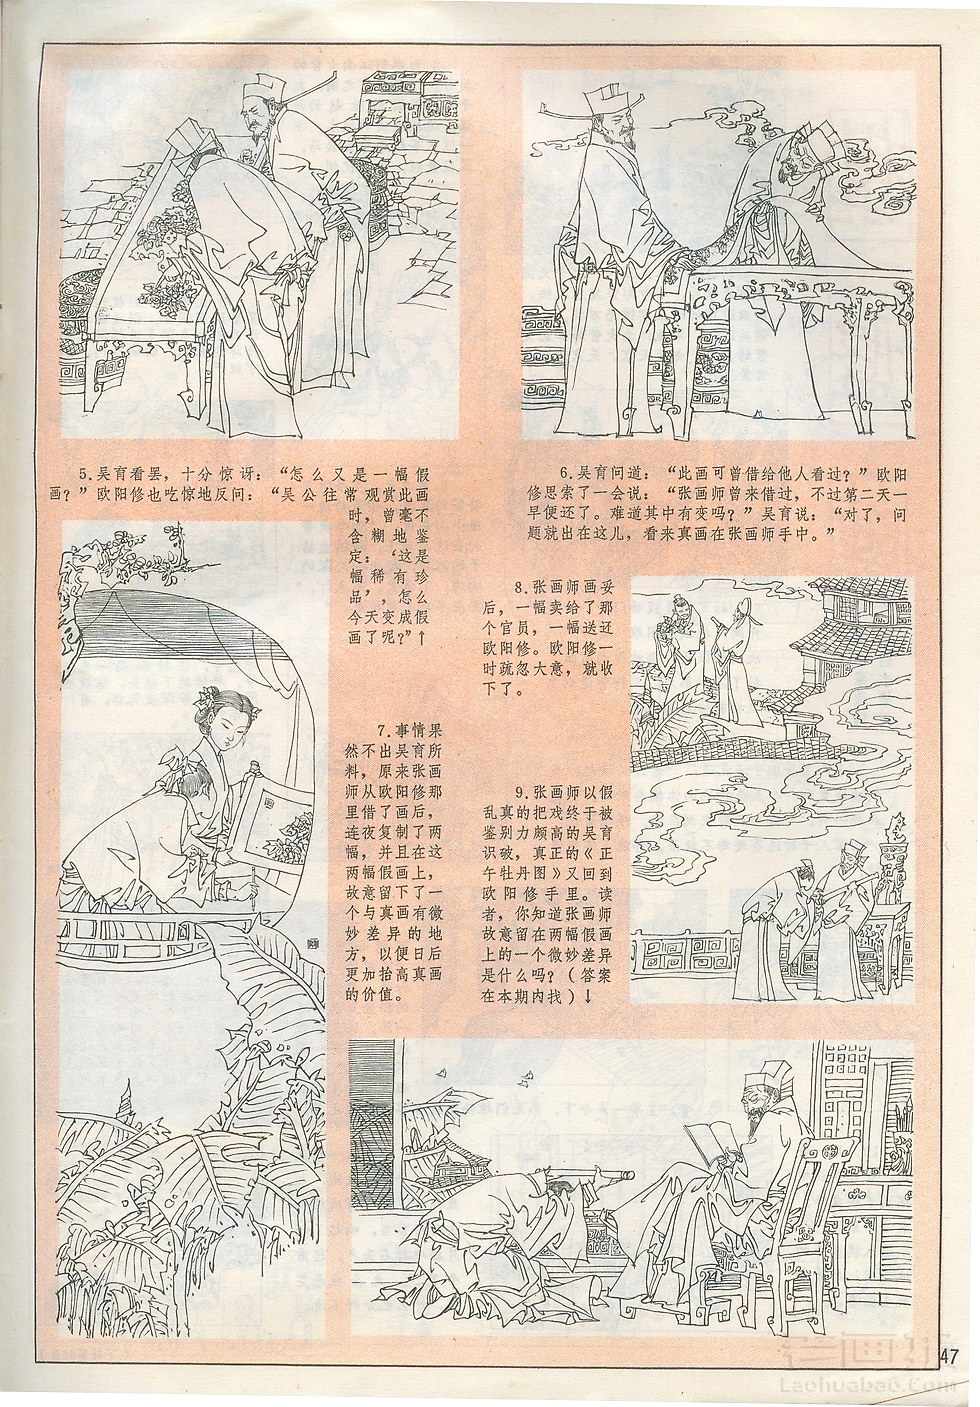 5.吴育看罢，十分惊讶：“怎么又是一幅假
画？”欧阳修也吃惊地反问：“吴公往常观赏此画
时，曾毫不
含糊地鉴
定：‘这是
幅稀有珍
品’，怎么
今天变成假
画了呢？”↑
6.吴育问道：“此画可曾借给他人看过？”欧阳
修思索了一会说：“张画师曾来借过，不过第二天一
早便还了。难道其中有变吗？”吴育说：“对了，问
题就出在这儿，看来真画在张画师手中。”
7.事情果
然不出吴育所
料，原来张画
师从欧阳修那
里借了画后，
连夜复制了两
幅，并且在这
两幅假画上，
故意留下了一
个与真画有微
妙差异的地
方，以便日后
更加抬高真画
的价值。
8.张画师画妥
后，一幅卖给了那
个官员，一幅送还
欧阳修。欧阳修一
时疏忽大意，就收
下了。
9.张画师以假
乱真的把戏终于被
鉴别力颇高的吴育
识破，真正的《正
午牡丹图》又回到
欧阳修手里。读
者，你知道张画师
故意留在两幅假画
上的一个微妙差异
是什么吗？（答案
在本期内找）↓
47
老画报
Laohuabao.Com